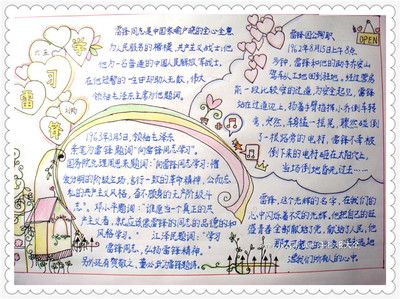 学习雷锋
雷锋同志是中国家喻户晓的全心全意
为人民服务的楷模,共产主义战士,他
作为一名普通的中国人民解放军战士,
在他短暂的一生中助人无数,伟大
领袖毛泽东主席为他题词。
1963年3月5日,领袖毛泽东
亲笔为雷锋题词"向雷锋同志学习"。
周恩来题词:"向雷锋同志学习:憎
爱分明的阶级立场,言行一致的革命精神,公而忘
私的共产主义风格,奋不顾身的无产阶级斗
志"。邓小平题词:"谁愿当一个真正的共
产主义者,就应该向雷锋同志的品德和
风格学习。" 江泽民题词:"学习
雷锋同志,弘扬雷锋精神。"
另外还有
为雷锋题词。
OPEN
雷锋因公殉职
1962年8月15日上午8点
多钟,雷锋和他的助手乔安山
驾车从工地回到驻地,
把车开进
一段比较窄的过道,为安全起见,雷锋
站在过道边上,扬着手臂指挥小乔倒车转
弯:突然,车轮一滑,
碰倒了一根
的电杆,雷锋不幸被
倒下来的电杆砸在太阳穴上,
当场
雷锋,这个光辉的名字,在我们的
心中闪烁着不灭的光辉,他把自己的
青春全部献给了党,献给了人民,他
温暖我们所有人的心中。